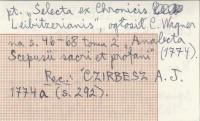 pt. „Selecta ex Chronicis
Leibitzerianis", ogłosił C. Wagner
na s. 46-68 tomu 2 „Analecta
Scepusii sacri et profani" (1774).
Rec.: CZIRBESZ A. J.
1774a (s. 292).